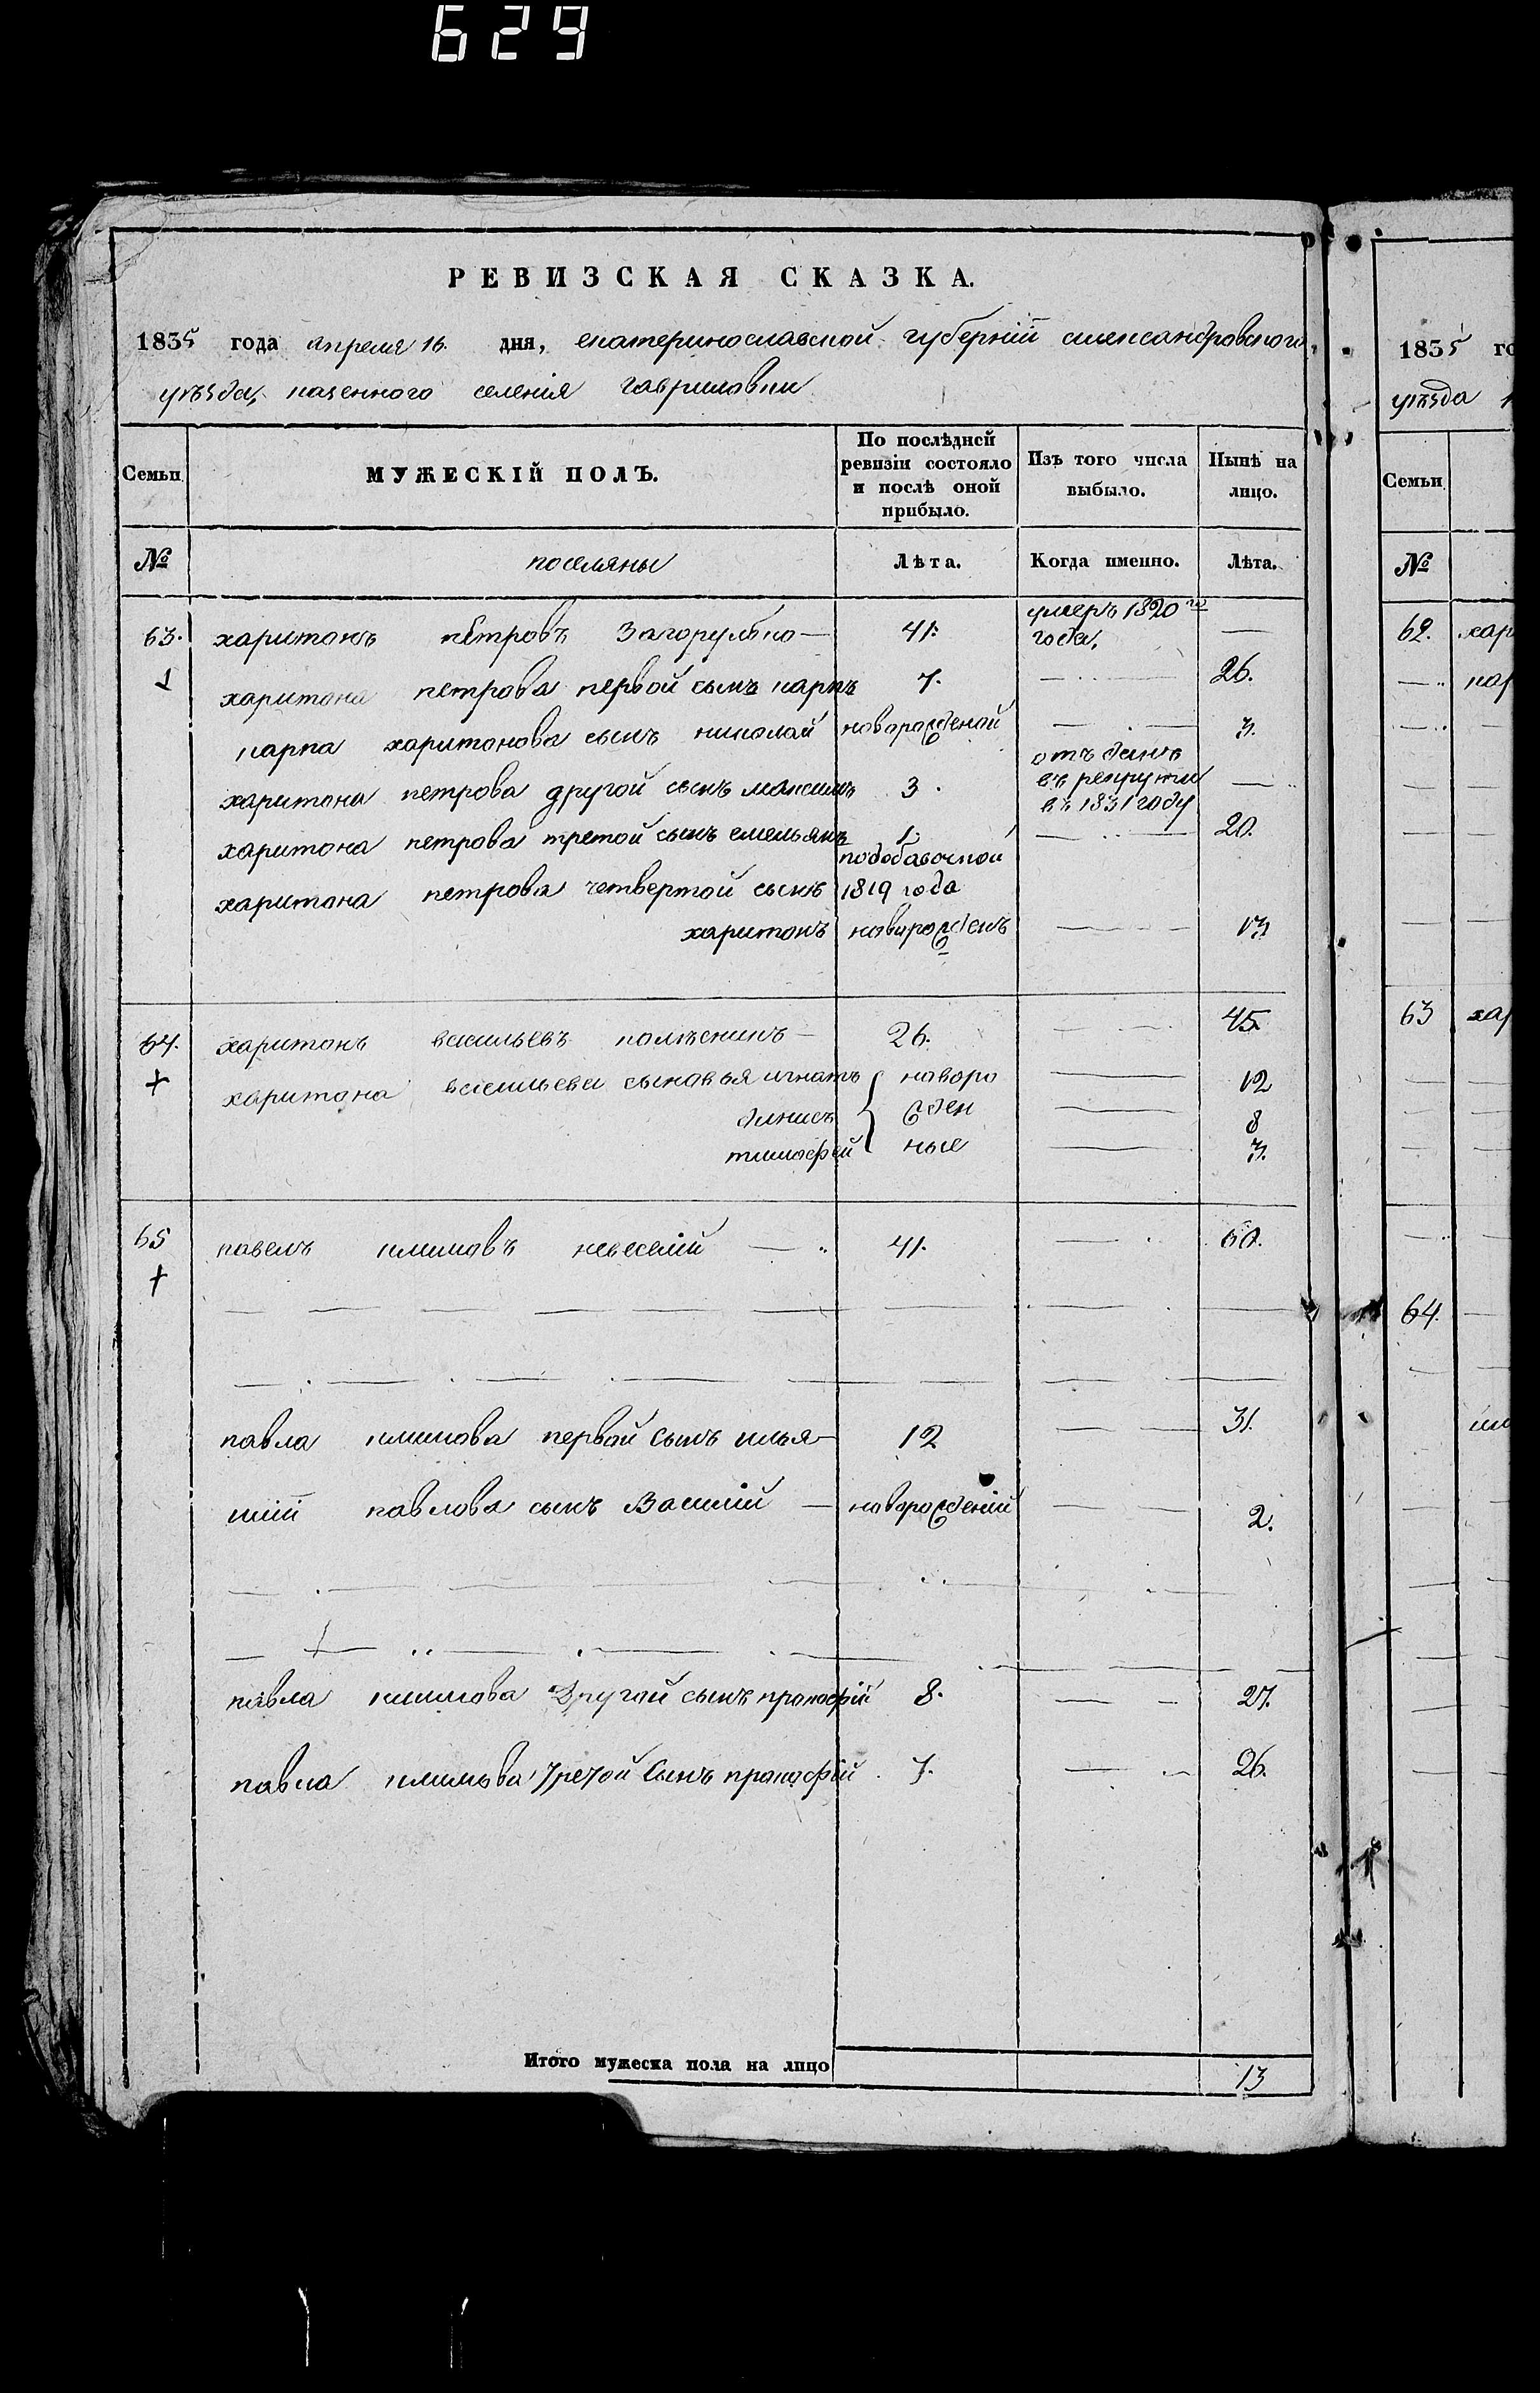 629
РЕВИЗСКАЯ СКАЗКА.
1835 года апреля 16. дня, екатеринославской губерніи александровского
уѣзда, казенного селенія гавриловки
Семьи
МУЖЕСКІЙ ПОЛЪ.
По послѣдней ревизіи состояло и послѣ оной прибыло.
Изъ того числа выбыло.
Нынѣ на лицо.
№ поселяны Лѣта. Когда именно. Лѣта.
63. харитонъ петровъ Загорулько — 41. умеръ 1820 го года. —
харитона петрова первой сынъ карпъ 7. — 26.
карпа харитонова сынъ николай новорожденой — 3.
харитона петрова другой сынъ максимъ 3. отъ данъ въ рекруты въ 1831 году —
харитона петрова третой сынъ емельянъ 1. — 20.
харитона петрова четвертой сынъ подобавочной 1819 года
харитонъ новорожденъ — 13
64. харитонъ васильевъ — 26. — 45.
харитона васильева сыновья игнатъ новоро — 12
динисъ жден — 8
тимофей ные — 3.
65 павелъ климовъ невеселій — 41. — 60.
павла климова первой сынъ илья — 12 — 31.
иліи павлова сынъ Василій — новорожденій — 2.
павла климова Другой сынъ прокофій 8. — 27.
павла климова Третой Сынъ прокофій 7. — 26.
Итого мужеска пола на лицо 13
1835 го
уѣзда
Семьи
№
62. хар
кар
63 хар
64.